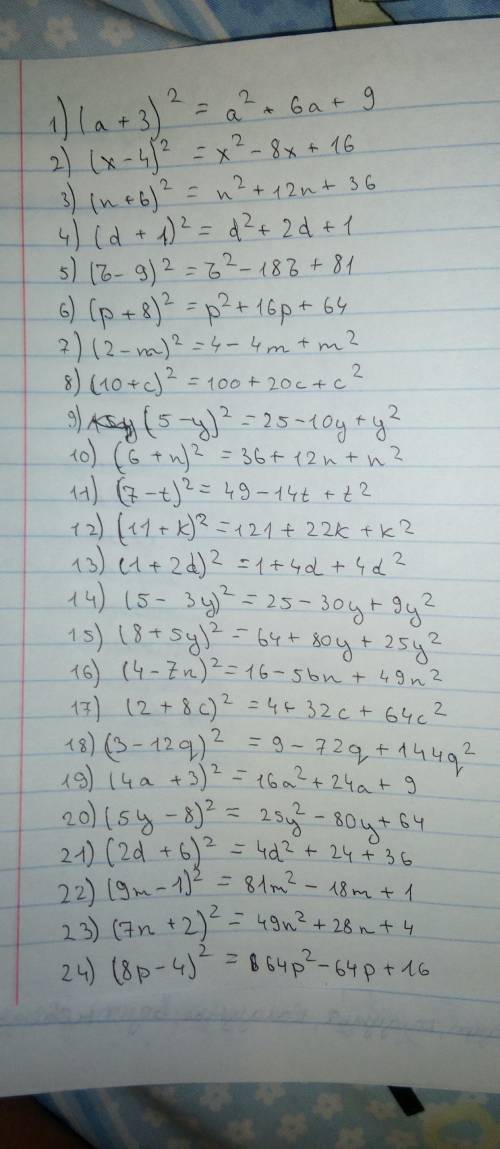 1) (a + 3)² = a² + 6a + 9
2) (x - 4)² = x² - 8x + 16
3) (n + 6)² = n² + 12n + 36
4) (d + 1)² = d² + 2d + 1
5) (b - 9)² = b² - 18b + 81
6) (p + 8)² = p² + 16p + 64
7) (2 - m)² = 4 - 4m + m²
8) (10 + c)² = 100 + 20c + c²
9) (5 - y)² = 25 - 10y + y²
10) (6 + n)² = 36 + 12n + n²
11) (7 - t)² = 49 - 14t + t²
12) (11 + k)² = 121 + 22k + k²
13) (1 + 2d)² = 1 + 4d + 4d²
14) (5 - 3y)² = 25 - 30y + 9y²
15) (8 + 5y)² = 64 + 80y + 25y²
16) (4 - 7n)² = 16 - 56n + 49n²
17) (2 + 8c)² = 4 + 32c + 64c²
18) (3 - 12q)² = 9 - 72q + 144q²
19) (4a + 3)² = 16a² + 24a + 9
20) (5y - 8)² = 25y² - 80y + 64
21) (2d + 6)² = 4d² + 24 + 36
22) (9m - 1)² = 81m² - 18m + 1
23) (7n + 2)² = 49n² + 28n + 4
24) (8p - 4)² = 64p² - 64p + 16